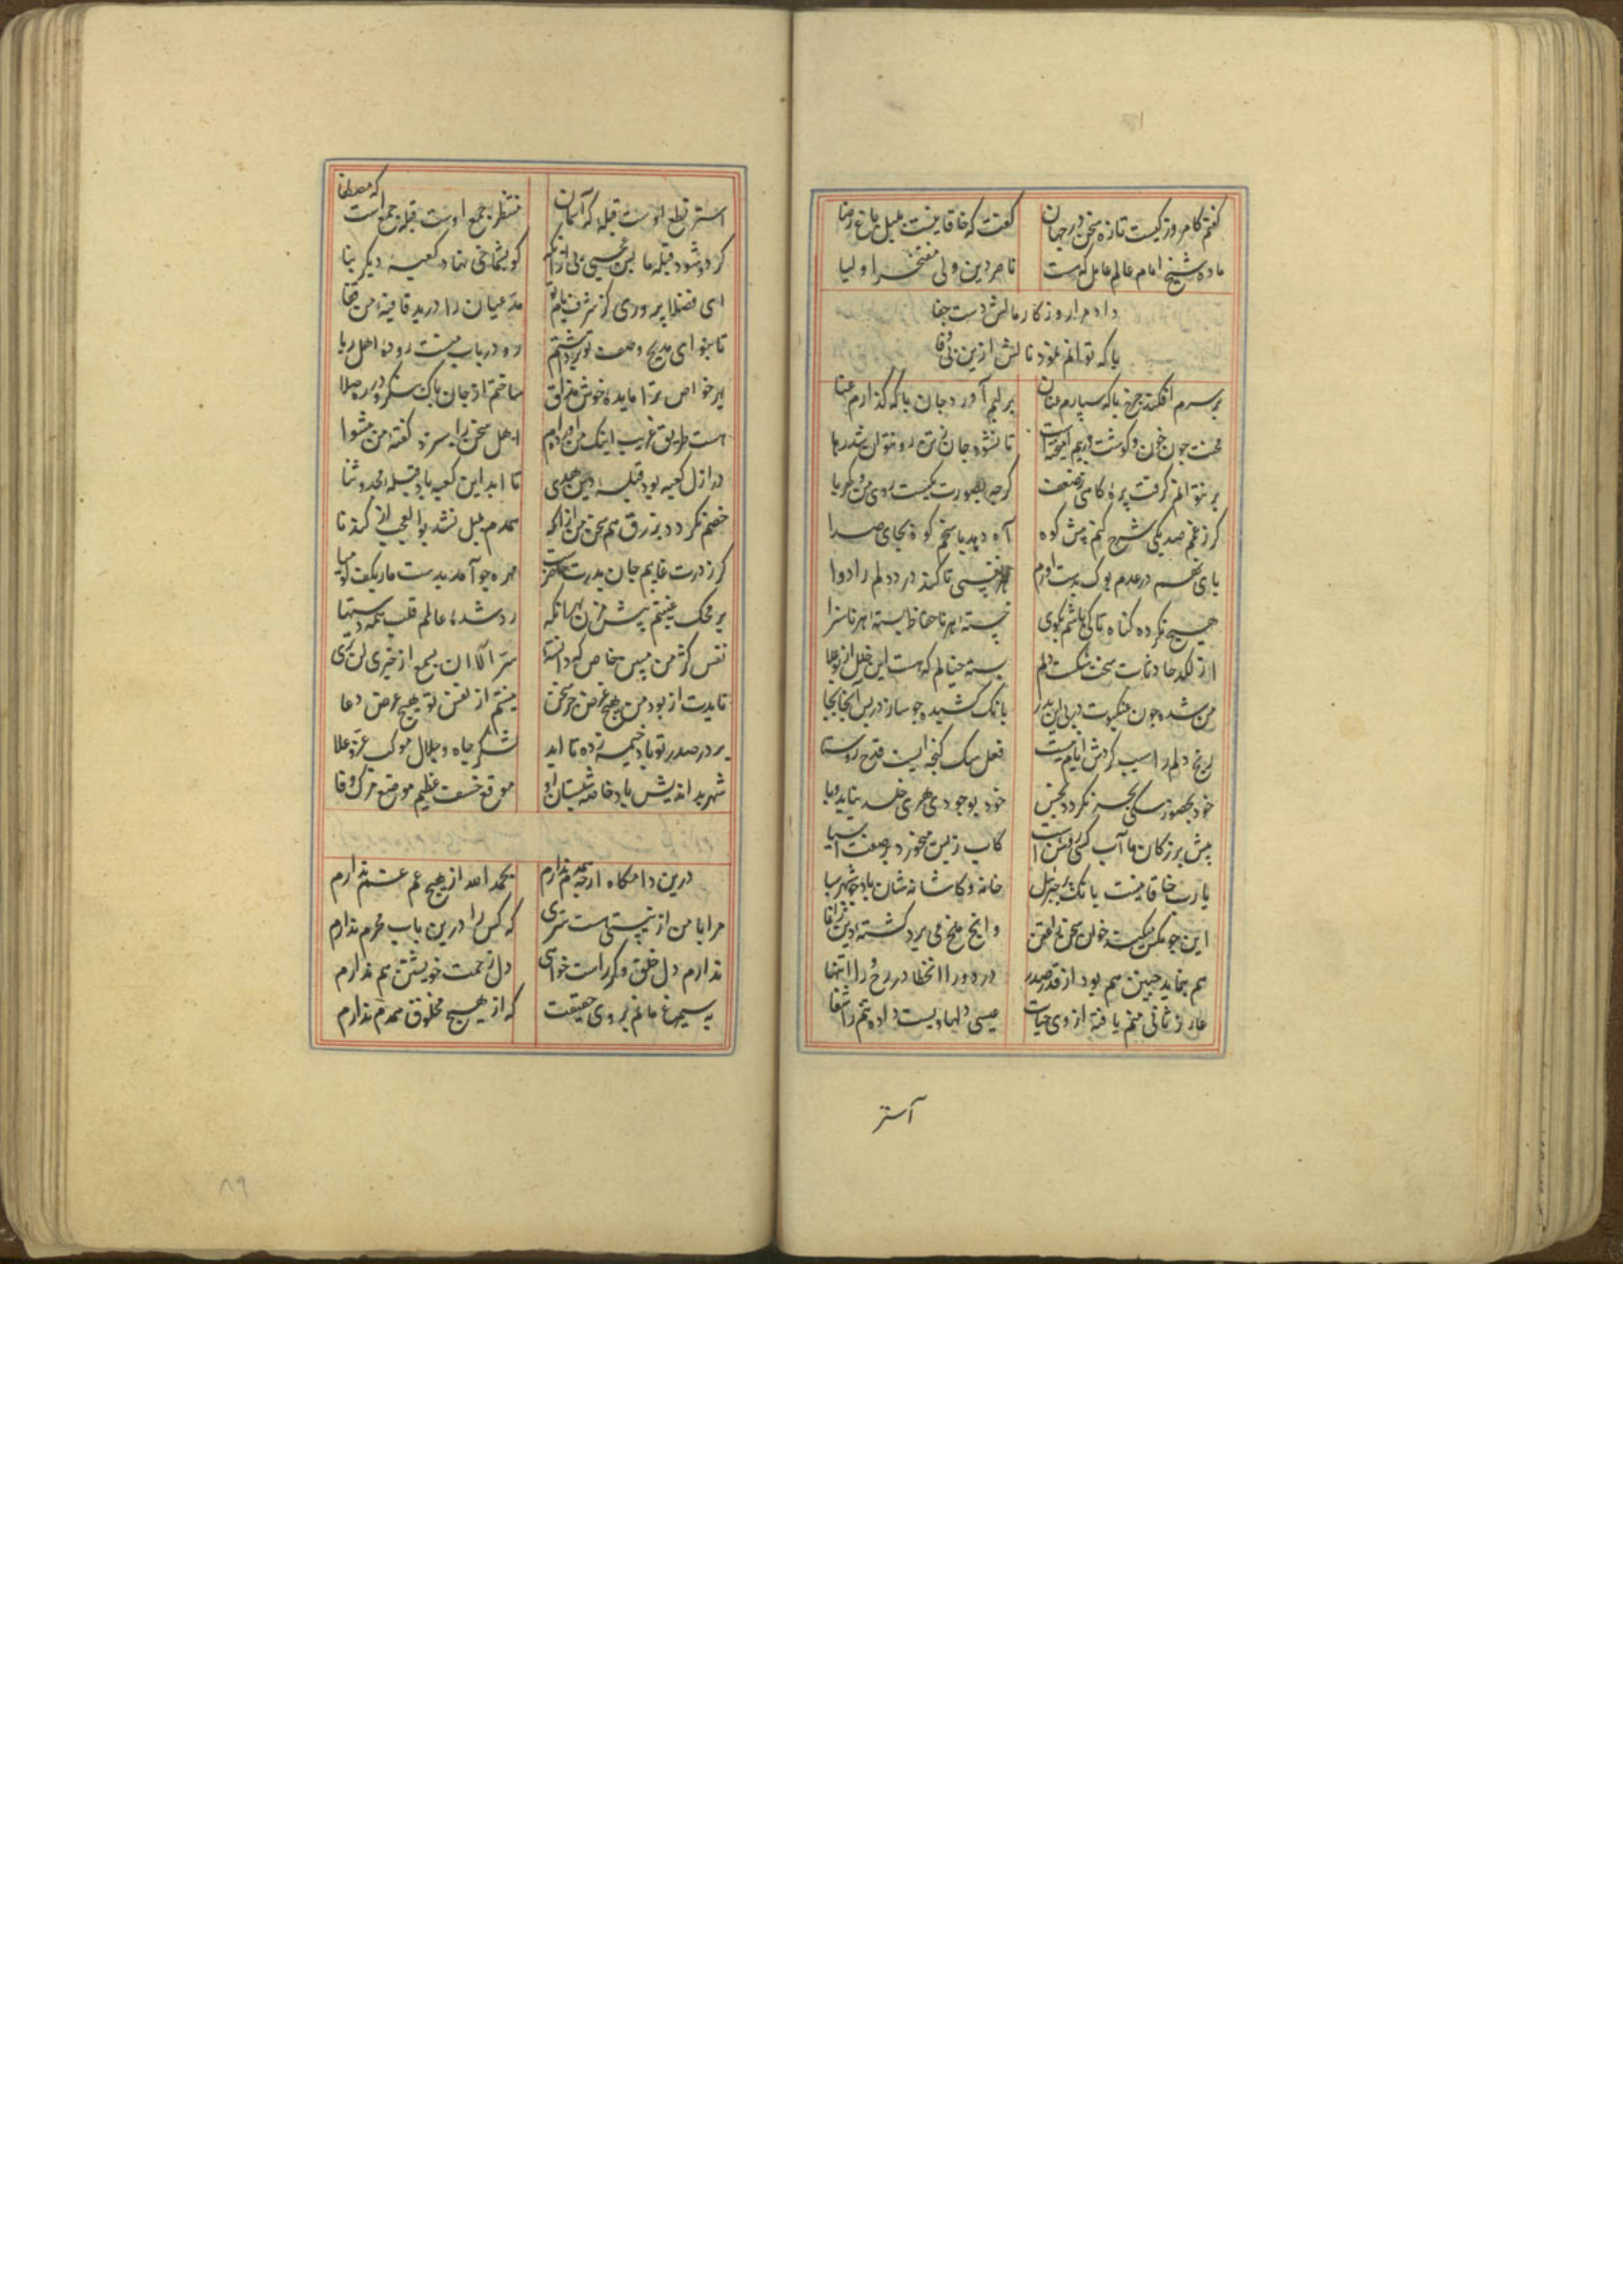 گفتم کامروز کیست تازه سخن در جهان گفت که خاقانیست بلبل باغ رضا
ماده شیخ امام عالم عامل که هست ناصر دین ولی مفتخر اولیا
داد مرا روزگار مالش دست جفا
با که توانم نمود نالش ازین بی وفا
بر سرم افکند چرخ با که سپارم عنان بر لبم آورد جان با که گذارم عنا
محنت چون خون و گوشت در تنم آمیخته است تا نشود جان ز تن زو نتوان شد رها
بر نتوانم گرفت پره کاهی ز ضعف گرچه بصورت یکیست روی من و کهربا
گر ز غمم صد یکی شرح کنم پیش کوه آه دهد پاسخم کوه بجای صدا
یاری نفسی تا کند درد دلم را دوا
هیچ نکرده گناه تا کی باشم بگوی خسته هر ناحفاظ بسته هر ناسزا
از لگد حادثات سخت شکسته دلم بسته خیالم که هست این خلل از بوالعلا
من شده چون عنکبوت در پی آن در بدر بانگ کشیده چو سار در پس این جابجا
رنج دلم را سبب گردش ایام نیست فعل سگ گنجه است قدح روستا
خود بحضور سگی بحر نگردد نجس خود بوجود خری خلد نیابد وبا
پیش بزرگان ما آب کسی روشن است کاب ز پس میخورد بر صفت آسیا
یارب خاقانیست بانگ پر جبرئیل خانه و کاشانه شان باد چو شهر سبا
هم بنماید چنین هم بود از قدر صدر درد ورا انحطاط روح را انتها
عازر ثانی منم یافته از وی حیات عیسی دلها ویست داده تنم را شفا
آستر
آستر نطع اوست قبله که آسمان منتظر جمع اوست قبله جمع است که مصطفا
گرد و شود قبله ما بس عجبی نی از آنکه گو بشماخی نهاد کعبه دیگر بنا
ای فضلا پروری کز شرف نام تو مدعیان را درید قافیه من قفا
تا بنوای مدیح وصف تو برداشتم رود رباب منست روده اهل ریا
بر خواص ترا مایده خوش مذاق ساختم از جان پاک بنگر و در ده صلا
هست طریق غریب اینک من آورده ام اهل سخن را سزد گفته من پیشوا
در ازل کعبه بود قبله دین هدی تا ابد این کعبه باد قبله مجد و ثنا
خصم نگردد بزرق هم سخن من از آنکه همدم بلبل نشد بوالعجب از گندنا
گر ز درت غایبم جان بدرت حاضر است مهره چو آمد بدست مار بکف گو میا
بر محک نیستم پیش خران هم از آنکه رد شده عالمم قلب همه دستها
تا بدت از بود من هیچ غرض جز سخن نیستم از نفس تو هیچ غرض جز دعا
بر در صدر تو باد خیمه زده تا ابد لشکر جاه و جلال موکب عز و علا
شهر بد اندیش باد خانه شبستان او موقع خسف عظیم موضع ترک وفا
درین دامگاه ارچه همدم ندارم بحمدالله از هیچ غم غم ندارم
مرا با من از نیستی هست سری که کس را درین باب محرم ندارم
ندارم دل خلق و گر راست خواهی دل زحمت خویشتن هم ندارم
به سیمرغ مانم ز روی حقیقت که از هیچ مخلوق همدم ندارم
۸۹